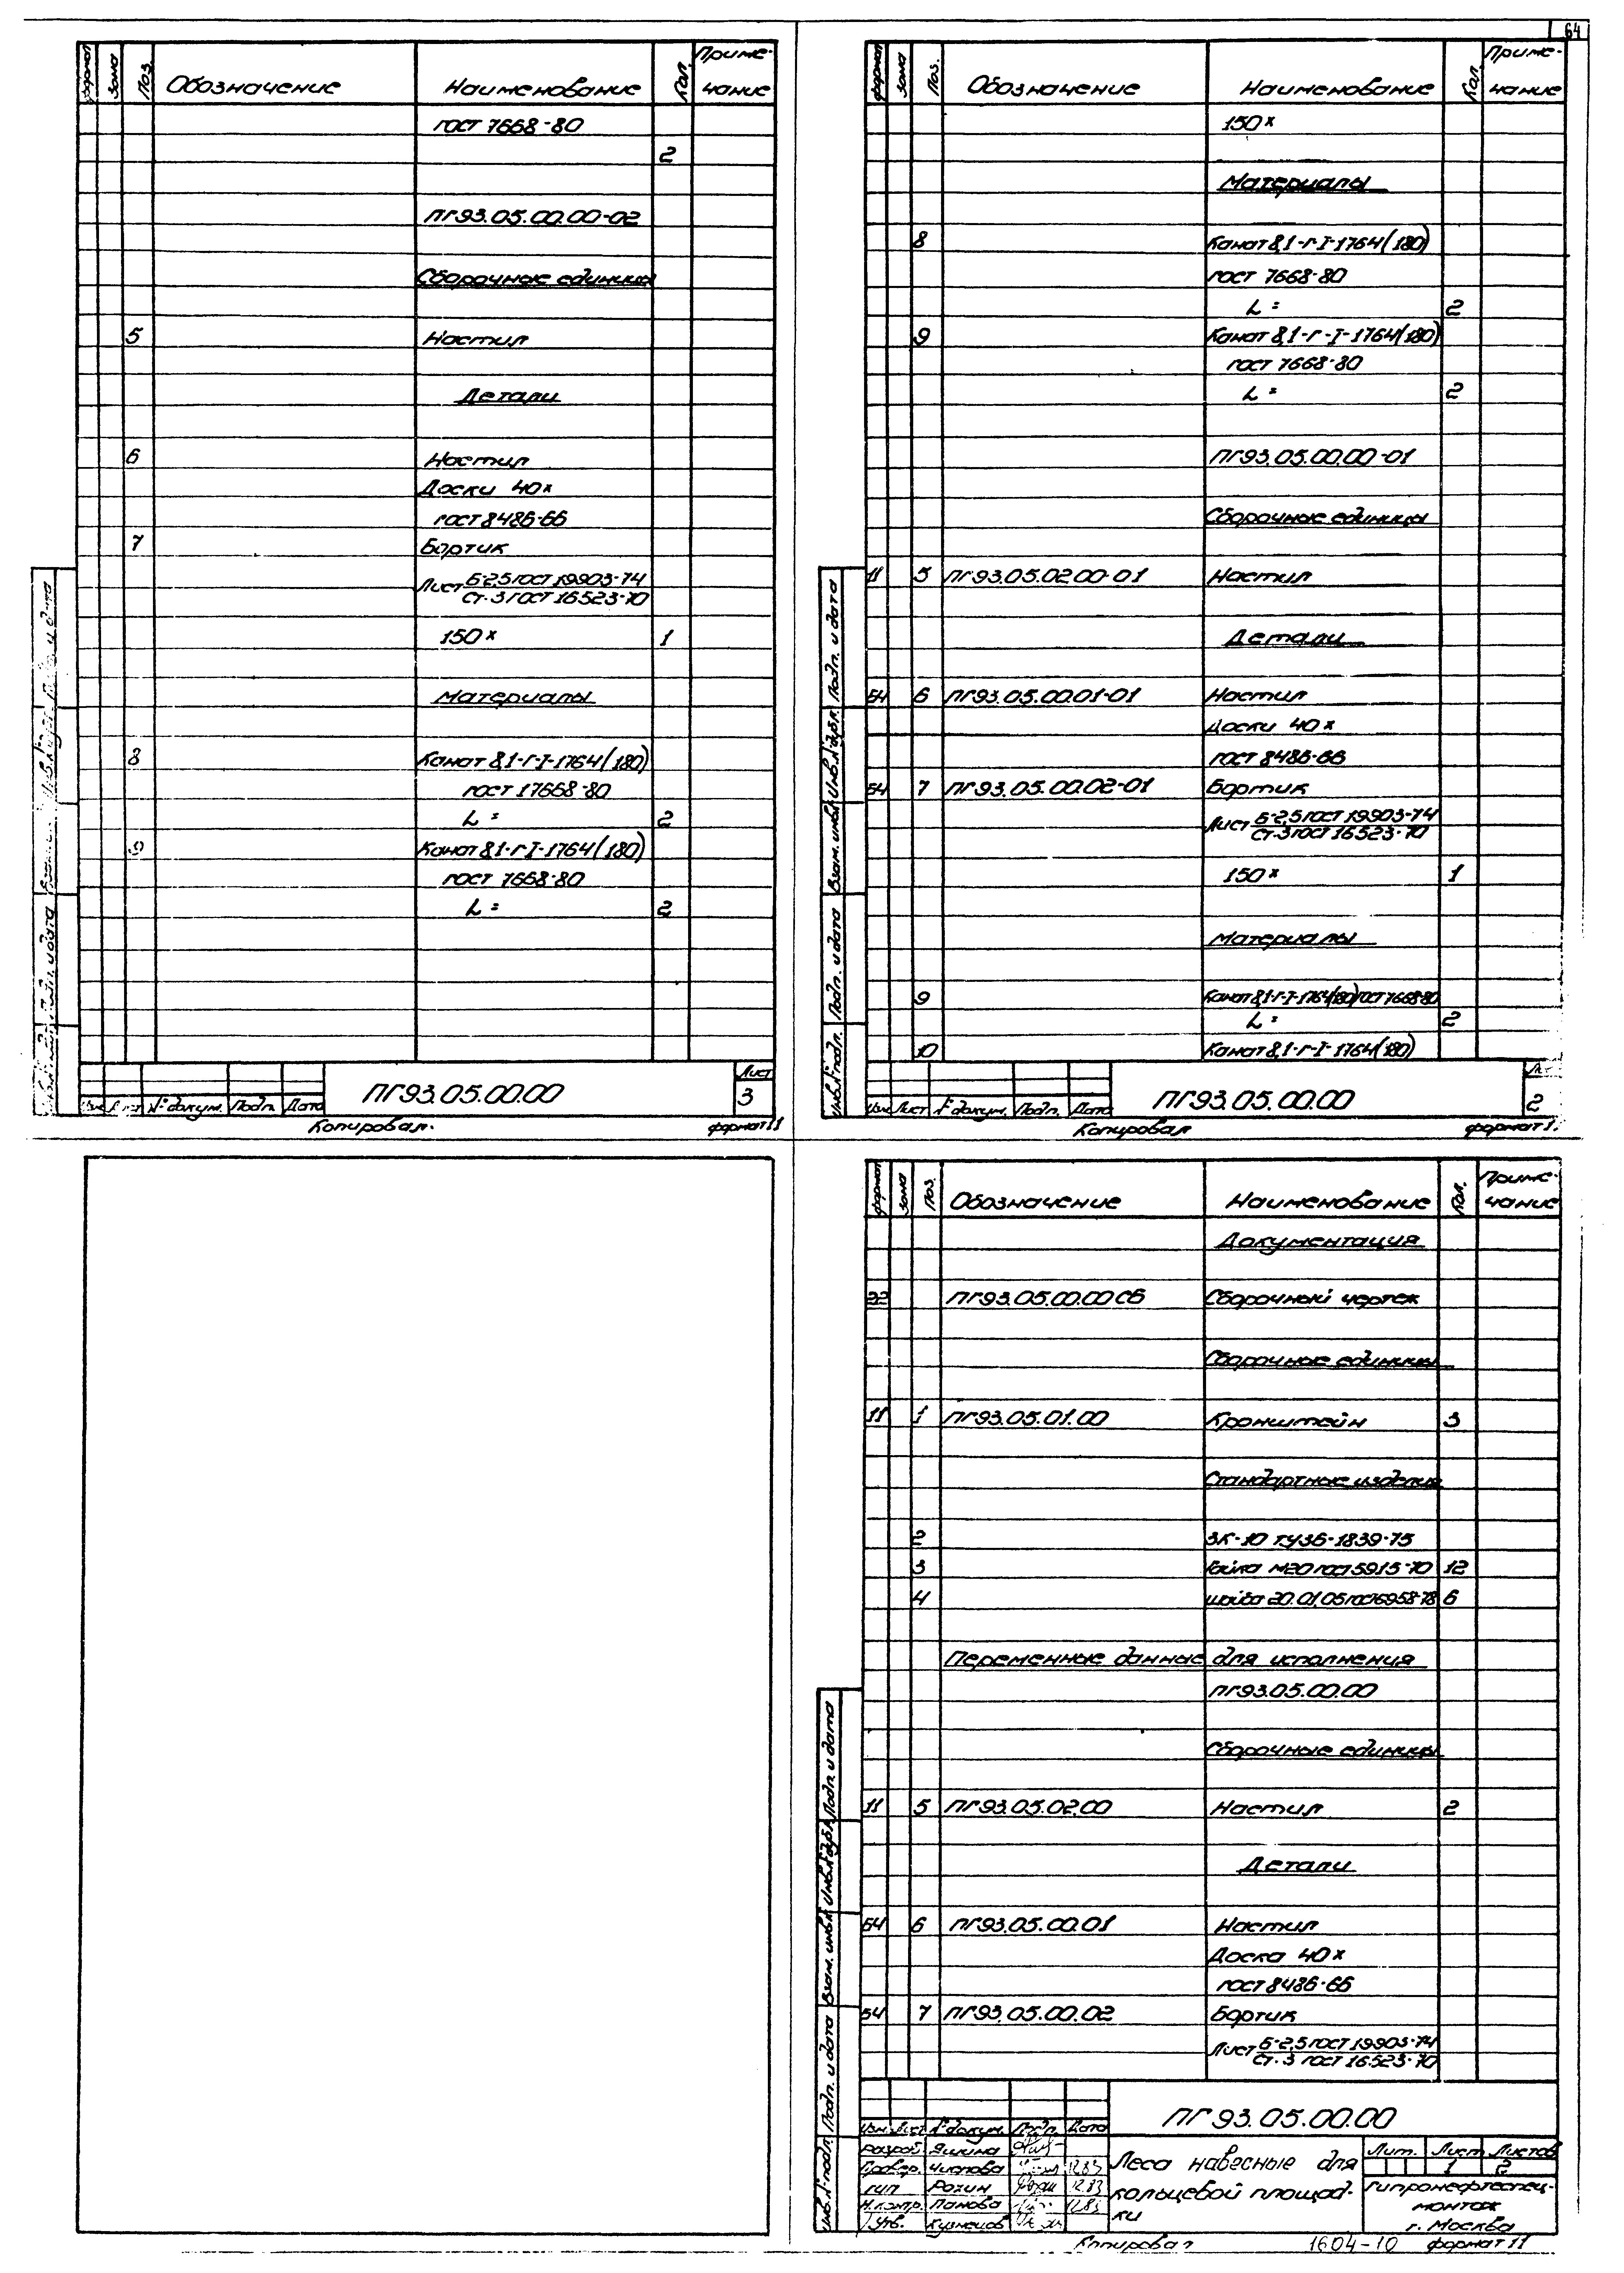 64
формат зона Поз. Обозначение Наименование Кол. Приме-
чание
ГОСТ 7668-80
2
ПГ93.05.00.00-02
Сборочные единицы
5 Настил
Детали
6 Настил
Доски 40х
ГОСТ 8486-66
7 Бортик
Лист Б-2,5 ГОСТ 19903-74
Ст.3 ГОСТ 16523-70
150х 1
Материалы
8 Канат 8,1-Г-I-1764(180)
ГОСТ 17668-80
L = 2
9 Канат 8,1-Г-I-1764(180)
ГОСТ 7668-80
L = 2
Подп. и дата
Изм Лист № докум. Подп. Дата
ПГ93.05.00.00
Лист
3
Копировал.
формат 11
формат зона Поз. Обозначение Наименование Кол. Приме-
чание
150х
Материалы
8 Канат 8,1-Г-I-1764(180)
ГОСТ 7668-80
L = 2
9 Канат 8,1-Г-I-1764(180)
ГОСТ 7668-80
L = 2
ПГ93.05.00.00-01
Сборочные единицы
11 5 ПГ93.05.02.00-01 Настил
Детали
Б4 6 ПГ93.05.00.01-01 Настил
Доски 40х
ГОСТ 8486-66
Б4 7 ПГ93.05.00.02-01 Бортик
Лист Б-2,5 ГОСТ 19903-74
Ст.3 ГОСТ 16523-70
150х 1
Материалы
9 Канат 8,1-Г-I-1764(180) ГОСТ 7668-80
L = 2
10 Канат 8,1-Г-I-1764(180)
Инв.№ подл. Подп. и дата Взам. инв.№ Инв.№ дубл. Подп. и дата
Изм Лист № докум. Подп. Дата
ПГ93.05.00.00
2
Копировал
формат 11
формат зона Поз. Обозначение Наименование Кол. Приме-
чание
Документация
22 ПГ93.05.00.00 СБ Сборочный чертеж
Сборочные единицы
11 1 ПГ93.05.01.00 Кронштейн 3
Стандартные изделия
2 ЗК-10 ТУ36-1839-75
3 Гайка М20 ГОСТ 5915-70 12
4 Шайба 20.01.05 ГОСТ 6958-78 6
Переменные данные для исполнения
ПГ93.05.00.00
Сборочные единицы
11 5 ПГ93.05.02.00 Настил 2
Детали
Б4 6 ПГ93.05.00.01 Настил
Доска 40х
ГОСТ 8486-66
Б4 7 ПГ93.05.00.02 Бортик
Лист Б-2,5 ГОСТ 19903-74
Ст.3 ГОСТ 16523-70
Инв.№ подл. Подп. и дата Взам. инв.№ Инв.№ дубл. Подп. и дата
ПГ93.05.00.00
Изм Лист № докум. Подп. Дата
Разраб. Яшина
Провер. Чиснова 12.83
ГИП Рохин 12.83
Н.контр. Панова 12.83
Утв. Кузнецов
Леса навесные для
кольцевой площад-
ки
Лит. Лист Листов
1 2
Гипронефтеспец-
монтаж
г. Москва
Копировал 1604-10 формат 11